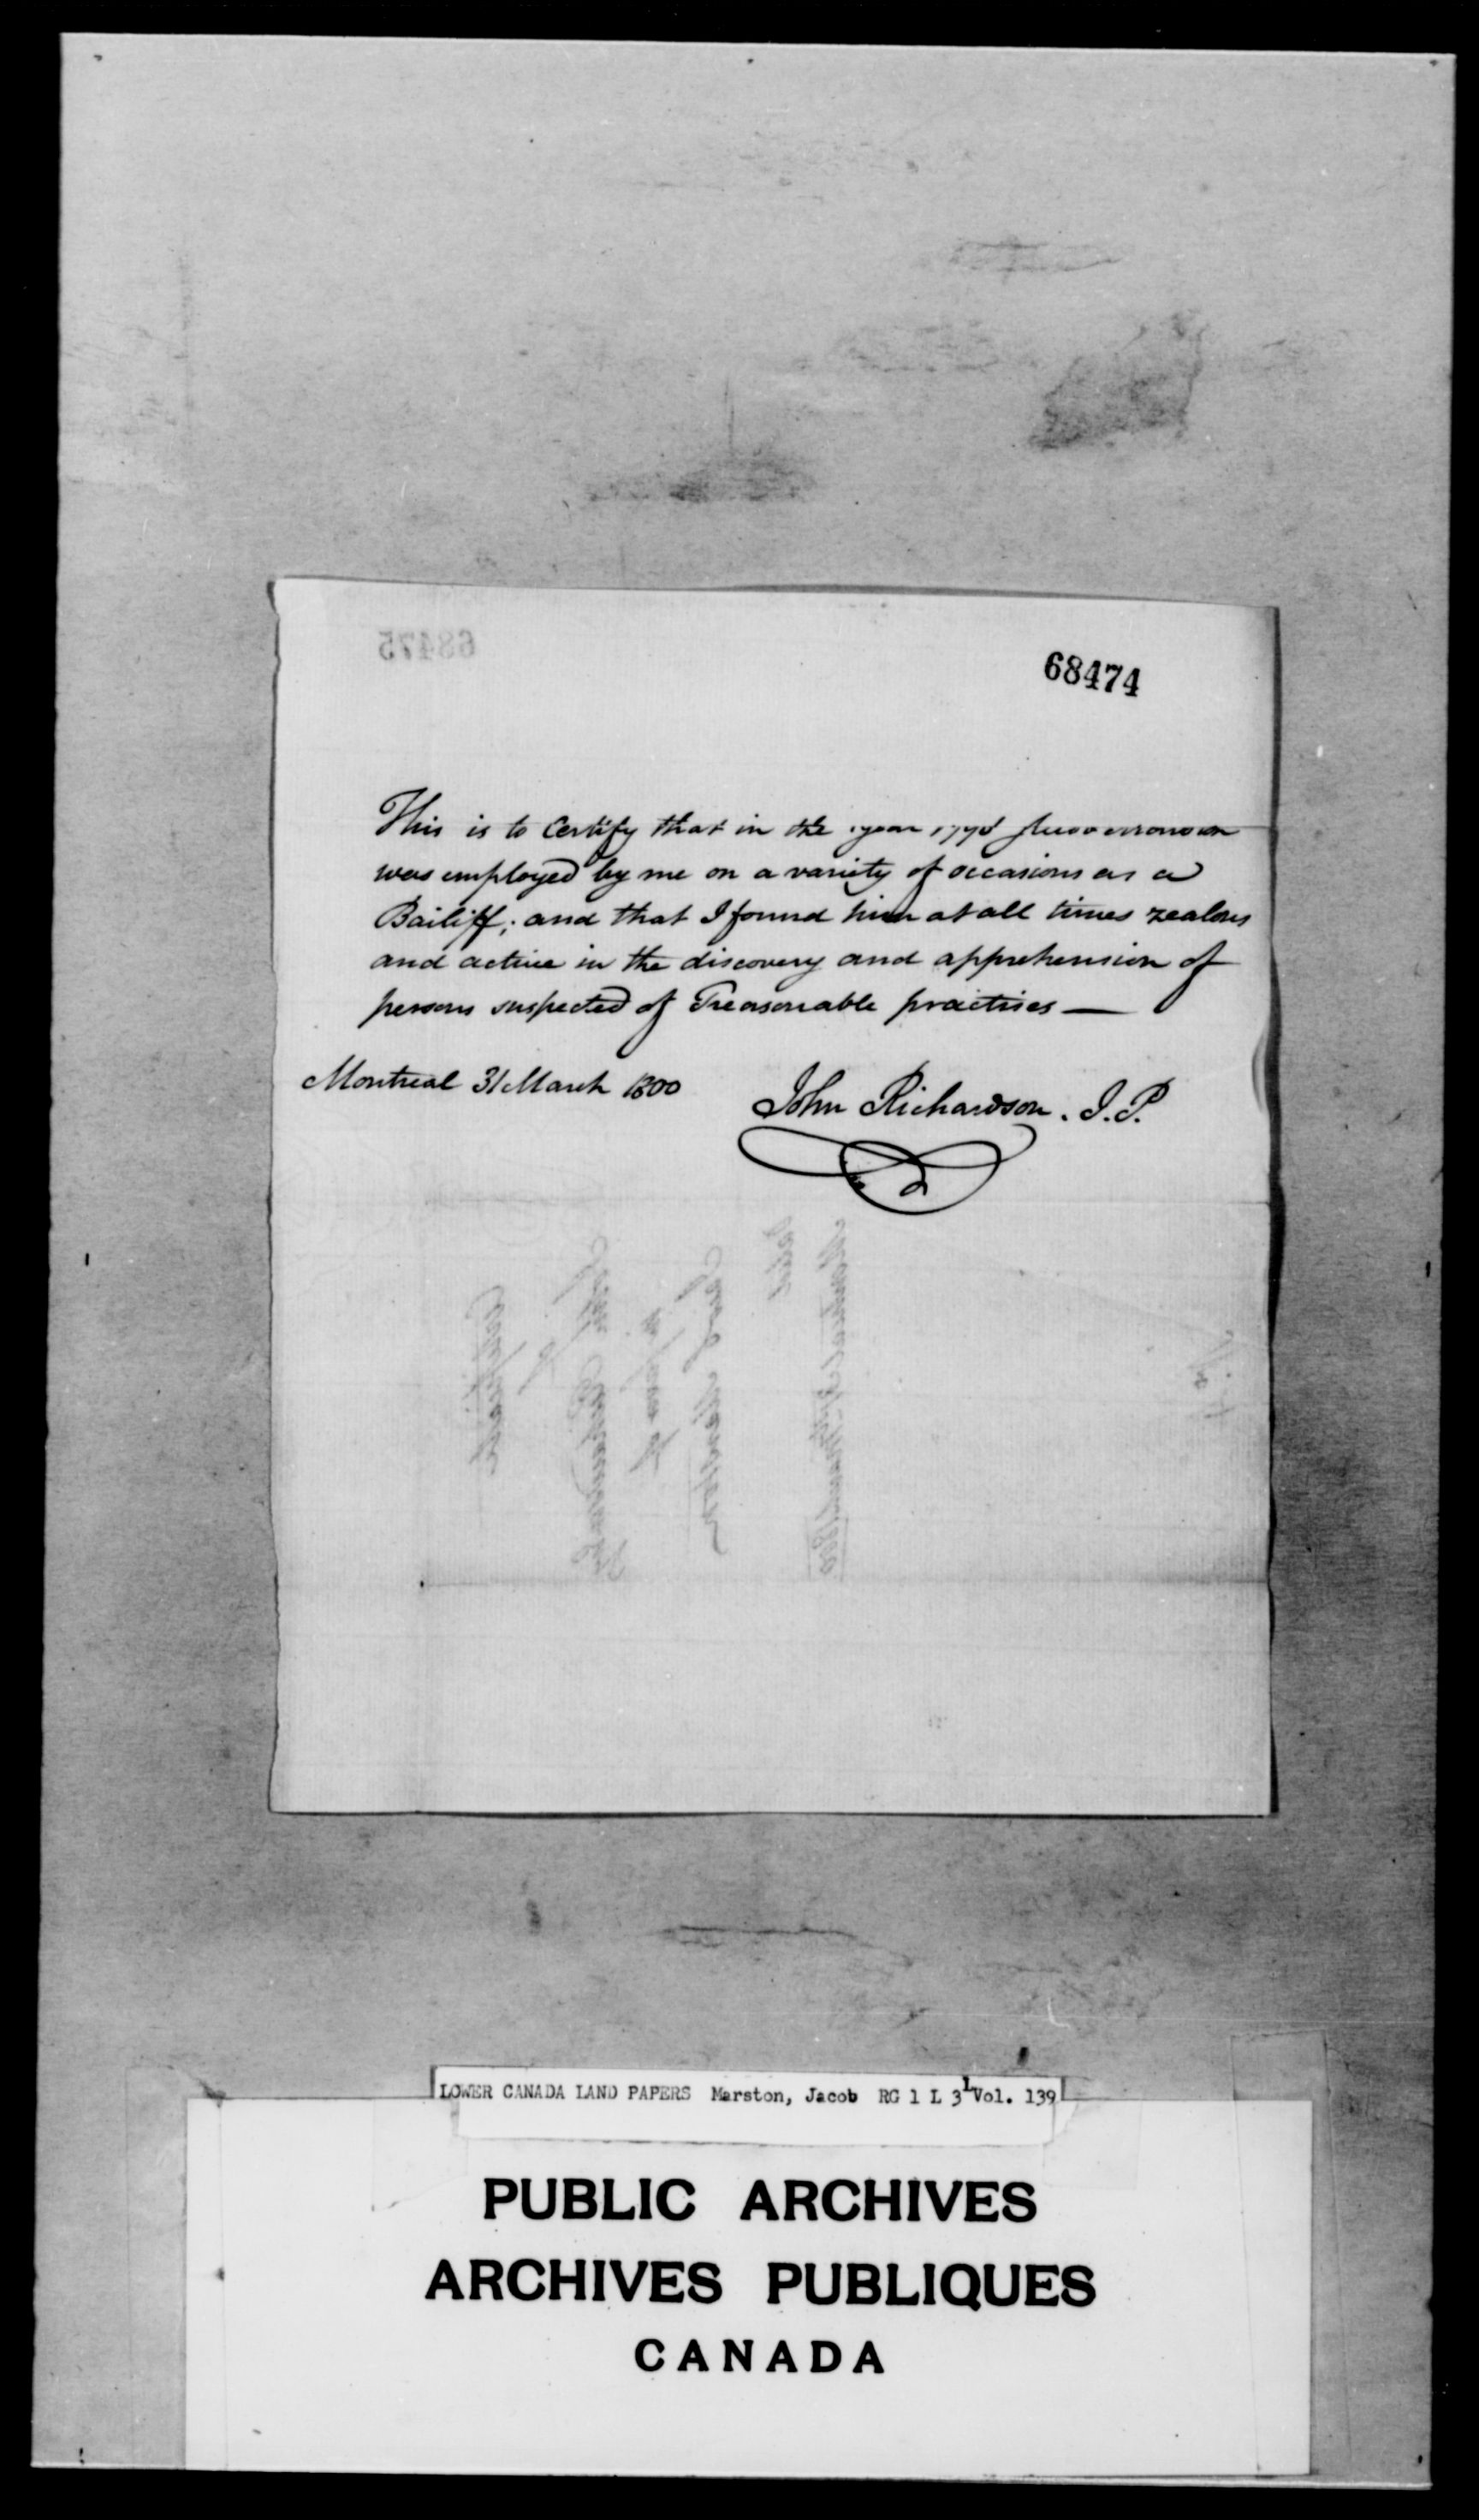 68474
This is to Certify that in the year
was employed by me on a variety of occasions as a
Bailiff; and that I found him at all times zealous
and active in the discovery and apprehension of
persons suspected of Treasonable practises —
Montreal 31 March 1800
John Richardson. J.P.
68475
LOWER CANADA LAND PAPERS Marston, Jacob RG 1 L 3 L Vol. 139
PUBLIC ARCHIVES
ARCHIVES PUBLIQUES
CANADA